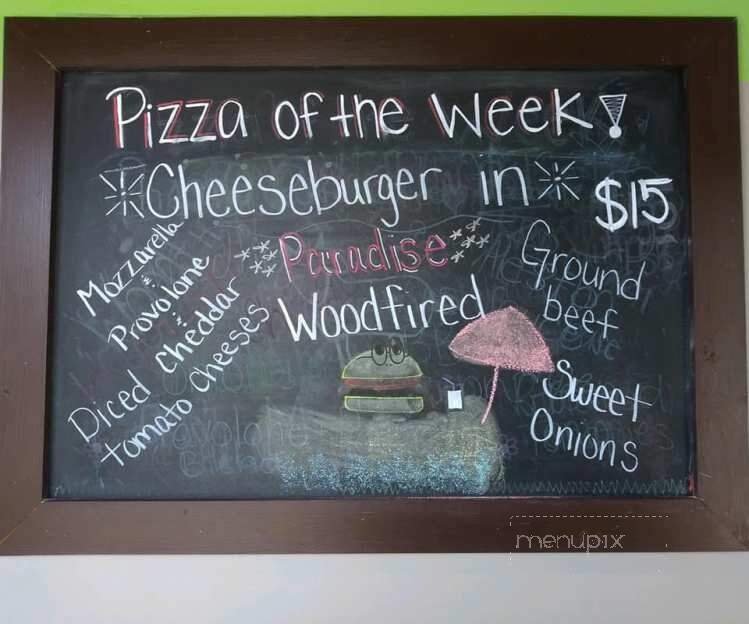 Pizza of the Week!
Cheeseburger in
$15
Paradise
Woodfired
Mozzarella
Provolone
Cheddar
Diced
tomato cheeses
Ground
beef
Sweet
Onions
menupix